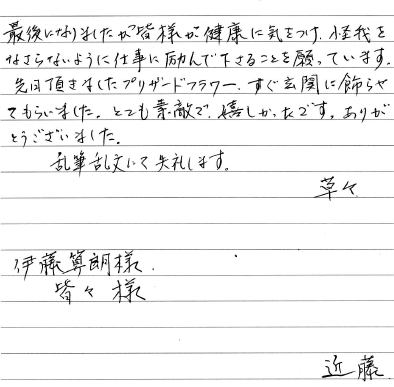 最後になりましたが皆様が健康に気をつけ、怪我を
なさらないように仕事に励んで下さることを願っています。
先日頂きましたプリザードフラワー、すぐ玄関に飾らせ
てもらいました。とても素敵で、嬉しかったです。ありが
とうございました。
乱筆乱文にて失礼します。
草々
伊藤算朗様
皆々様
近藤